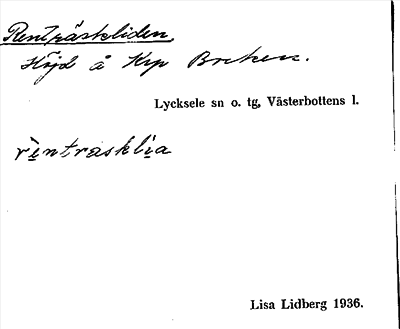 Renträskliden
Höjd å Krp Borken.
Lycksele sn o. tg, Västerbottens l.
rentrasklia
Lisa Lidberg 1936.